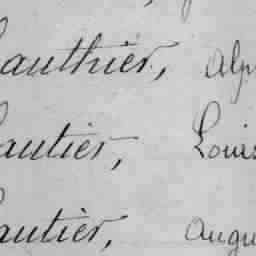 Gauthier, Alp
Gautier, Louis
Gautier, Augu